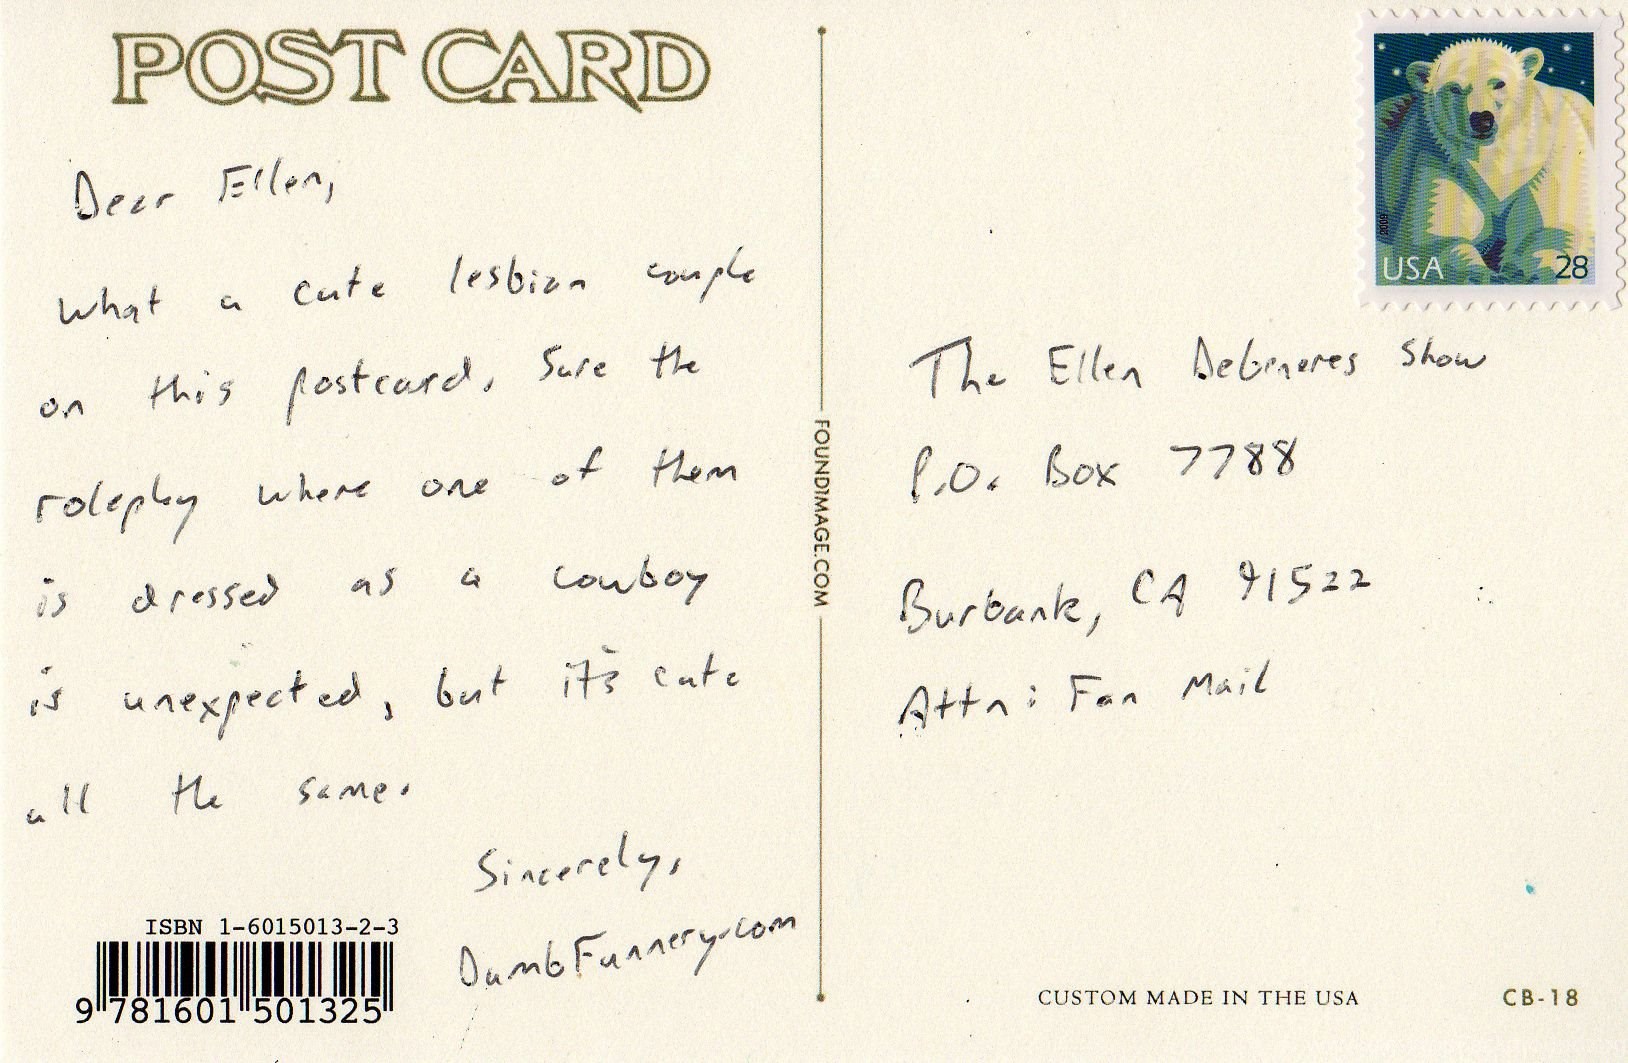 POST CARD
Dear Ellen,
What a cute lesbian couple
on this postcard. Sure the
roleplay where one of them
is dressed as a cowboy
is unexpected, but it's cute
all the same.
Sincerely,
DumbFunnery.com
ISBN 1-6015013-2-3
9 781601 501325
FOUNDIMAGE.COM
2009
USA 28
The Ellen Degeneres Show
P.O. Box 7788
Burbank, CA 91522
Attn: Fan Mail
CUSTOM MADE IN THE USA
CB-18